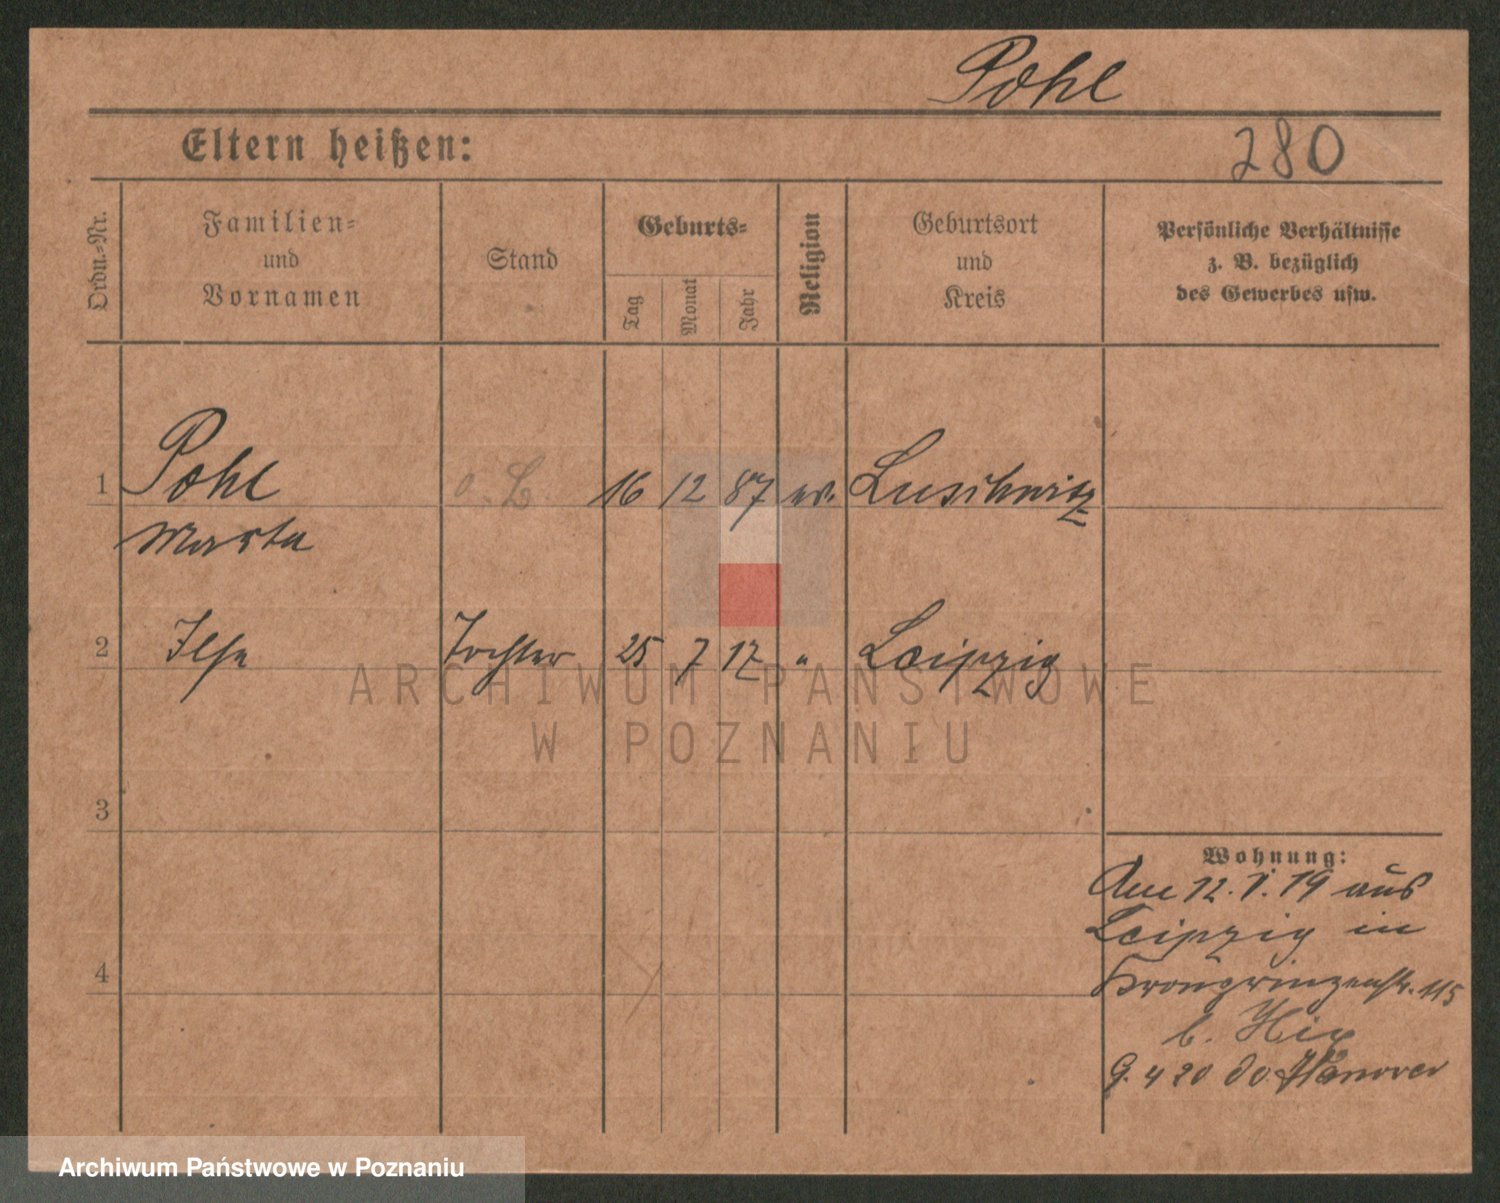 Pohl
Eltern heißen:
280
Ordn.-Nr.
Familien-
und
Vornamen
Stand
Geburts-
Tag
Monat
Jahr
Religion
Geburtsort
und
Kreis
Persönliche Verhältnisse
z. B. bezüglich
des Gewerbes usw.
1 Pohl o. B. 16 12 87 ev. Luschwitz
Marta
2 Ilse Tochter 25 7 12 " Leipzig
3
4
Wohnung:
Am 12. V. 19 aus
Leipzig in
Kronprinzenstr. 115
b. Hix
9. 4 20 Hanover
ARCHIWUM PAŃSTWOWE
W POZNANIU
Archiwum Państwowe w Poznaniu